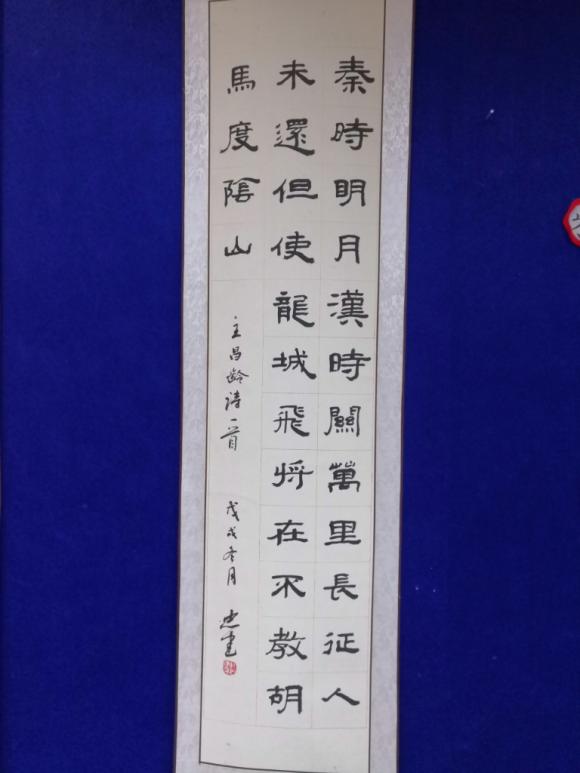 秦時明月漢時關萬里長征人
未還但使龍城飛将在不教胡
馬度陰山
王昌龄诗一首
戊戌冬月